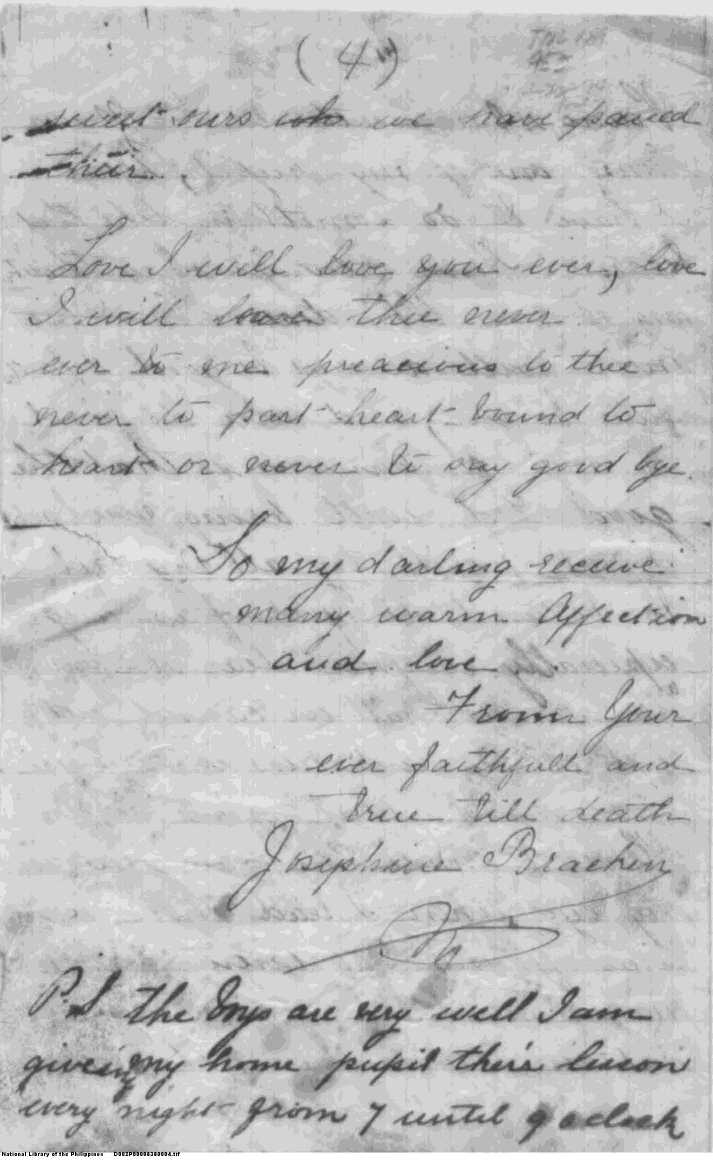 ( 4 )
sweet ours who we have passed
their.
Love I will love you ever, love
I will leave thee never
ever to me preacious to thee
never to part heart bound to
heart or never to say good bye.
So my darling receive
many warm Affection
and love
From Your
ever faithfull and
true till death
Josephine Bracken
P.S the boys are very well I am
giveing my home pupil their lesson
every night from 7 until 9 oclock
National Library of the Philippines D002P00000300004.tif